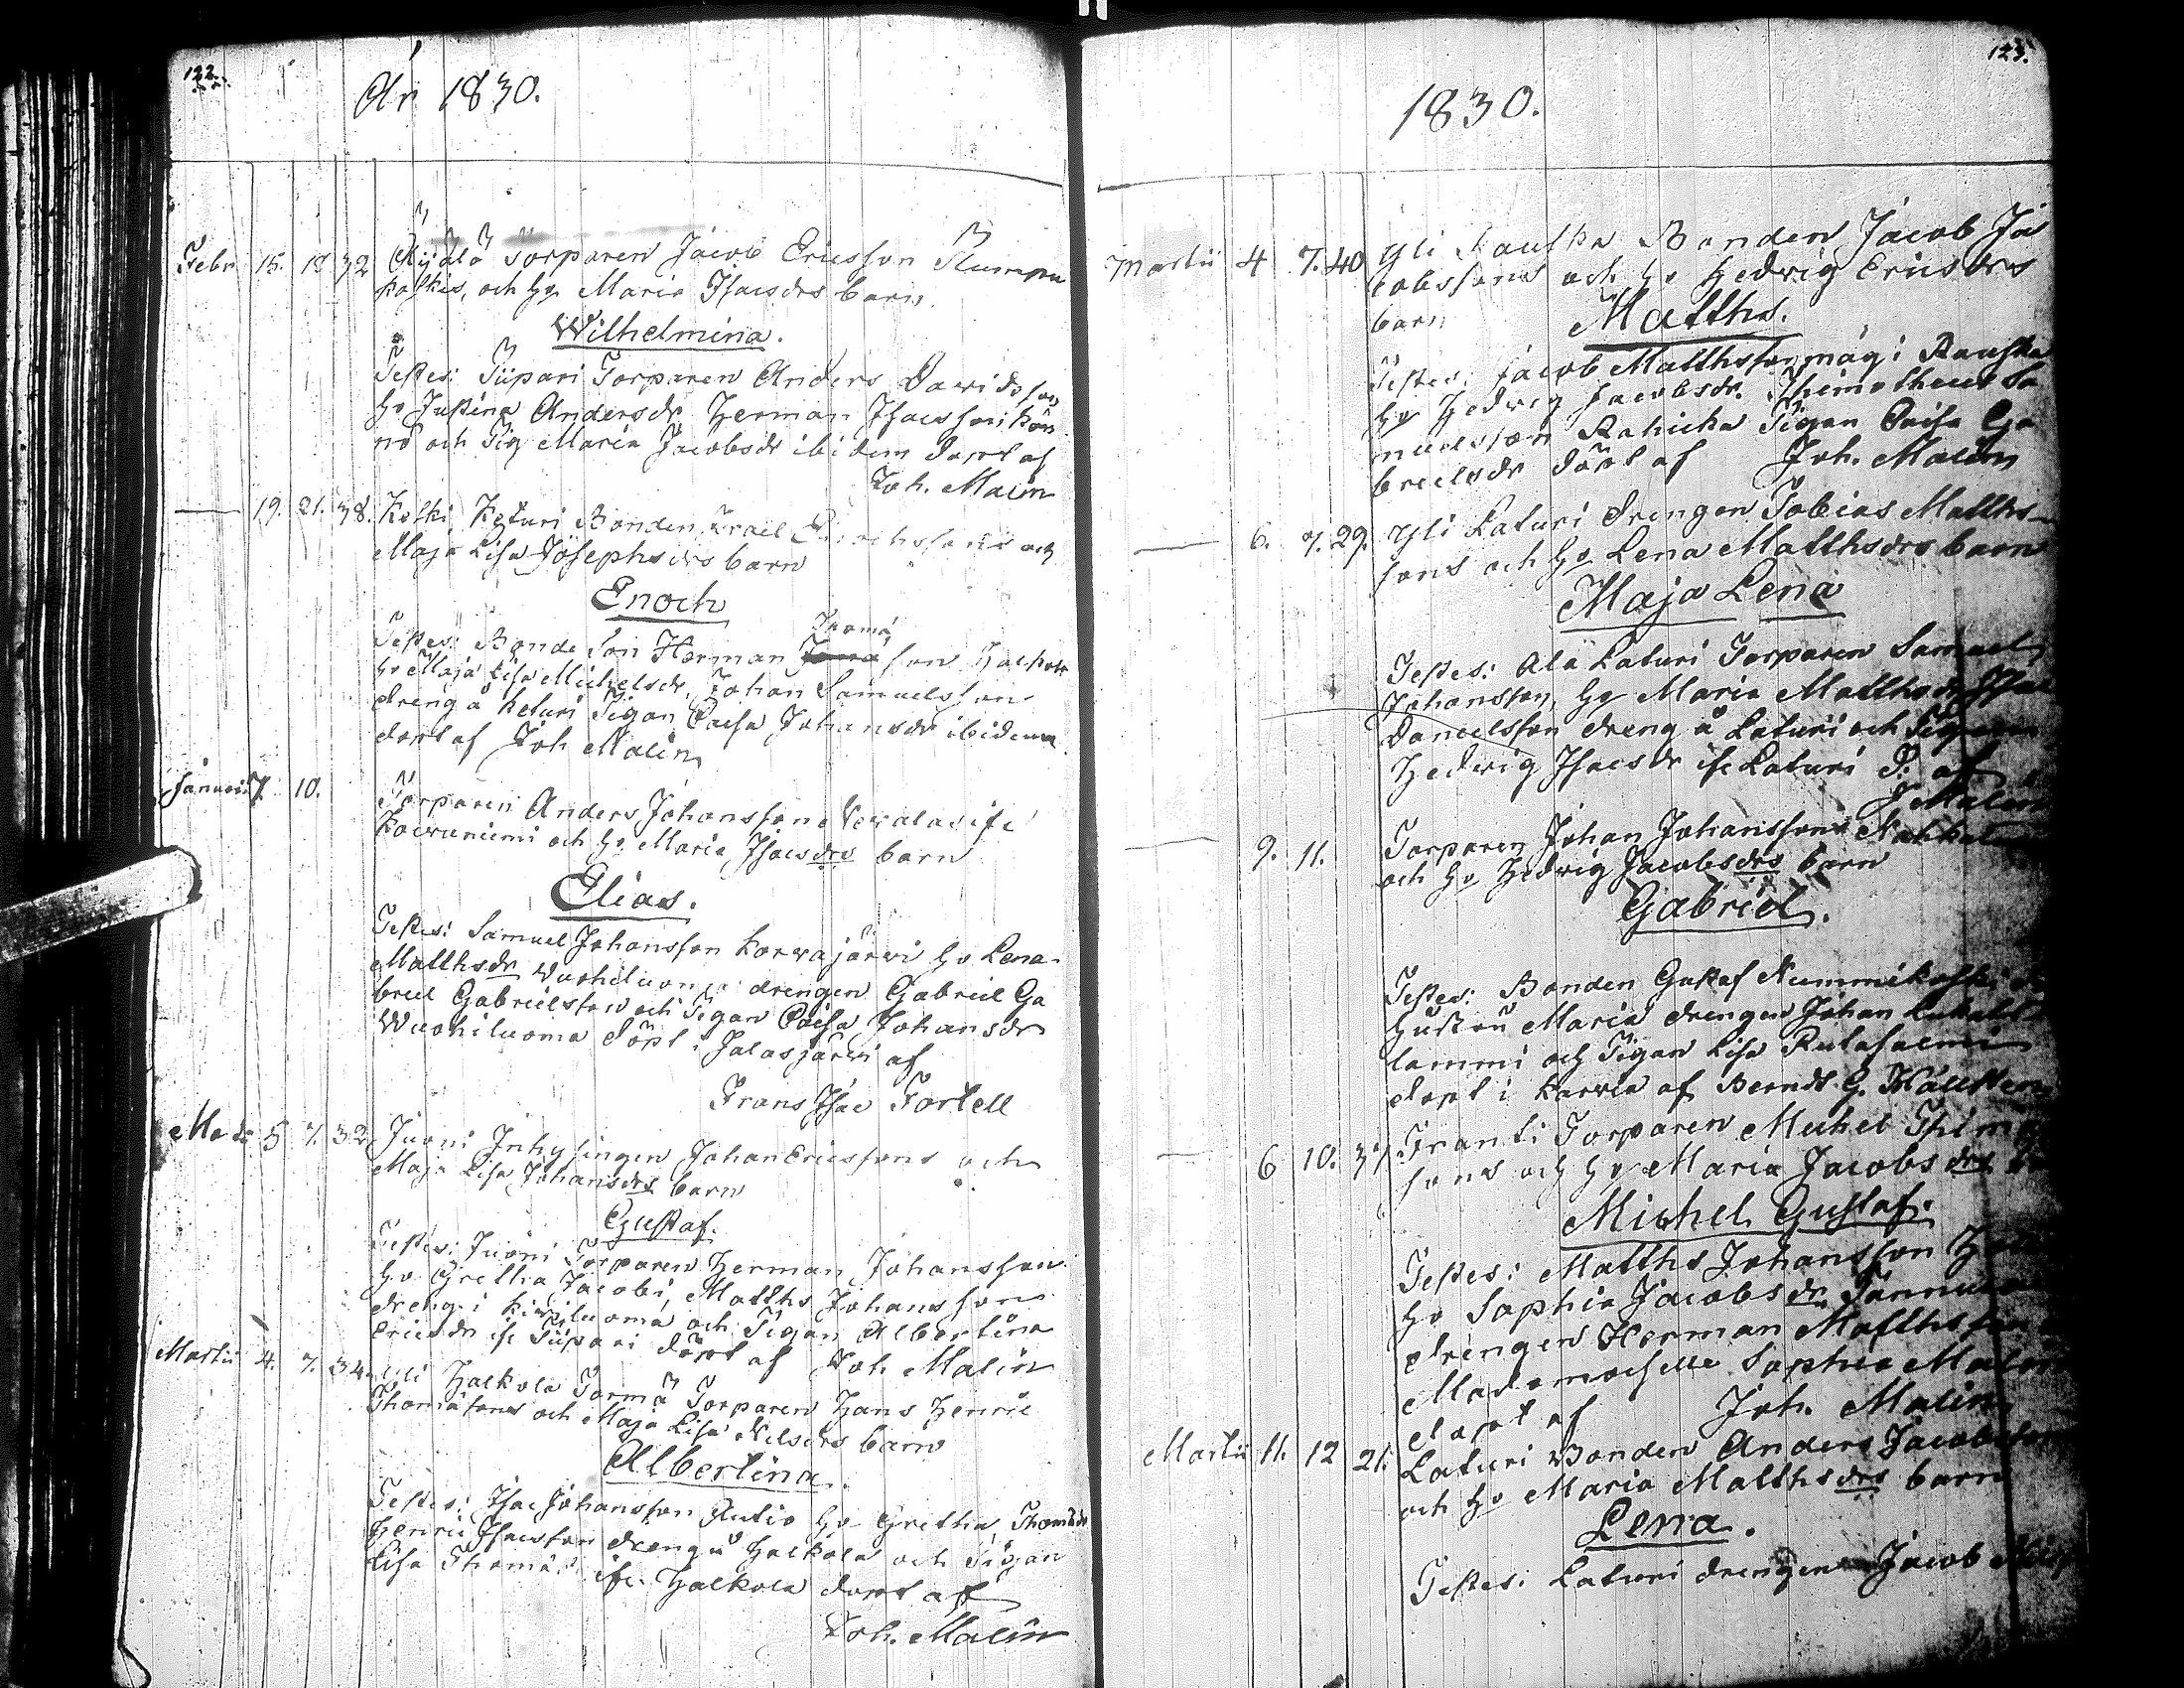 122.
År 1830.
Febr 15. 18 32 Torparen Jacob Ericsson Rumpu
koskis, och h. Maria Isacsdrs barn
Wilhelmina.
Testes: Siipari Torparen Anders Davidsson
h. Justina Andersdr Herman Isacsson
och Pig. Maria Jacobsdr ibidem döpt af
Joh. Malin
19. 21. 38. Koski Keturi Bonden Israel Enochssons och
Maja Lisa Josephsdrs barn
Enoch
Thomæ
Testes: Bonde Son Herman son Halkola
h. Maja Lisa Michelsdr, Johan Samuelsson
dreng å Keturi Pigan Caisa Johansdr ibidem
döpt af Joh Malin
Januari 7. 10.
Torparen Anders Johanssons ifr
och h. Maria Isacsdrs barn
Elias.
Testes: Samuel Johansson Korwajärwi h. Lena
Matthsdr Wuohiluoma drengen Gabriel Ga
briel Gabrielsson och Pigan Caisa Johansdr
Wuohiluoma döpt i Jalasjärwi af
Frans Isac Fortell
5 7. 32 Juoni Inhysingen Johan Ericssons och
Maja Lisa Johansdrs barn
Gustaf.
Testes: Juoni Torparen Herman Johansson
h. Gretha Jacobi, Matths Johansson
dreng i Kiwiluoma och Pigan Albertina
Ericsdr ifr Siipari döpt af Joh. Malin
Martii 4. 7. 34. Yli Halkola Torparen Hans Henric
Thomæsons och Maja Lisa Nilsdrs barn
Albertina.
Testes: Isac Johansson Rutio h. Gretha Thomædr
Henric Isacsson dreng å Halkola och Pigan
Lisa Thomæ ifr. Halkola döpt af
Joh. Malin
123.
1830.
Martii 4 7. 40 Yli Rauska Bonden Jacob Ja
cobssons och h. Hedwig Ericsdrs
barn Matths.
Testes: Jacob Matthsson måg i Rauska
h. Hedwig Jacobsdr. Thimotheus Sa
muelsson Rahicka Pigan Caisa Ga
brielsdr döpt af Joh. Malin
6. 7. 29. Yli Laturi Drengen Tobias Matths-
sons och h. Lena Matthsdrs barn
Maja Lena
Testes: Ala Laturi Torparen Samuel
Johansson, h. Maria Matthsdr Isac
Danielsson dreng å Laturi och Pigan
Hedwig Isacsdr ifr Laturi D. af
J. Malin
9. 11. Torparen Johan Johanssons
och h. Hedwig Jacobsdrs barn
Gabriel.
Testes: Bonden Gustaf Nummikoski
Hustru Maria drengen Johan
lammi och Pigan Lisa
döpt i Karwia af Berndt G.
6 10. 37 Franti Torparen Michel
sons och h. Maria Jacobsdrs
Michel Gustaf.
Testes: Matths Johansson
h. Sophia Jacobsdr
drengen Herman Matthsson
Mademoiselle Sophia Malin
döpt af Joh. Malin
Martii 11. 12 21. Laturi Bonden Anders Jacobssons
och h. Maria Matthsdrs barn
Lena.
Testes: Laturi drengen Jacob